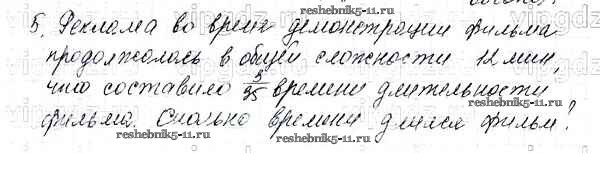 5. Реклама во время демонстрации фильма
продолжалась в общей сложности 12 мин,
что составило 3/35 времени длительности
фильма. Сколько времени длился фильм?
reshebnik5-11.ru
reshebnik5-11.ru
reshebnik5-11.ru